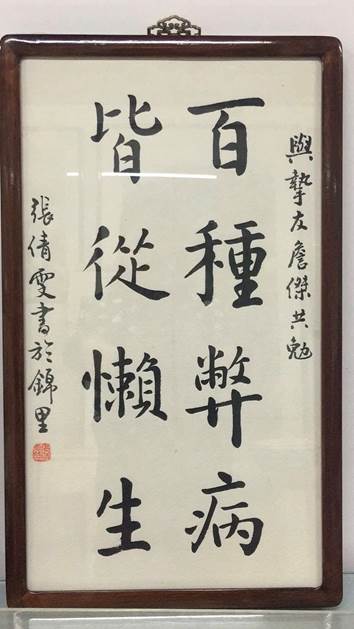 與摯友詹傑共勉
百種弊病
皆從懶生
張倩雯書於錦里